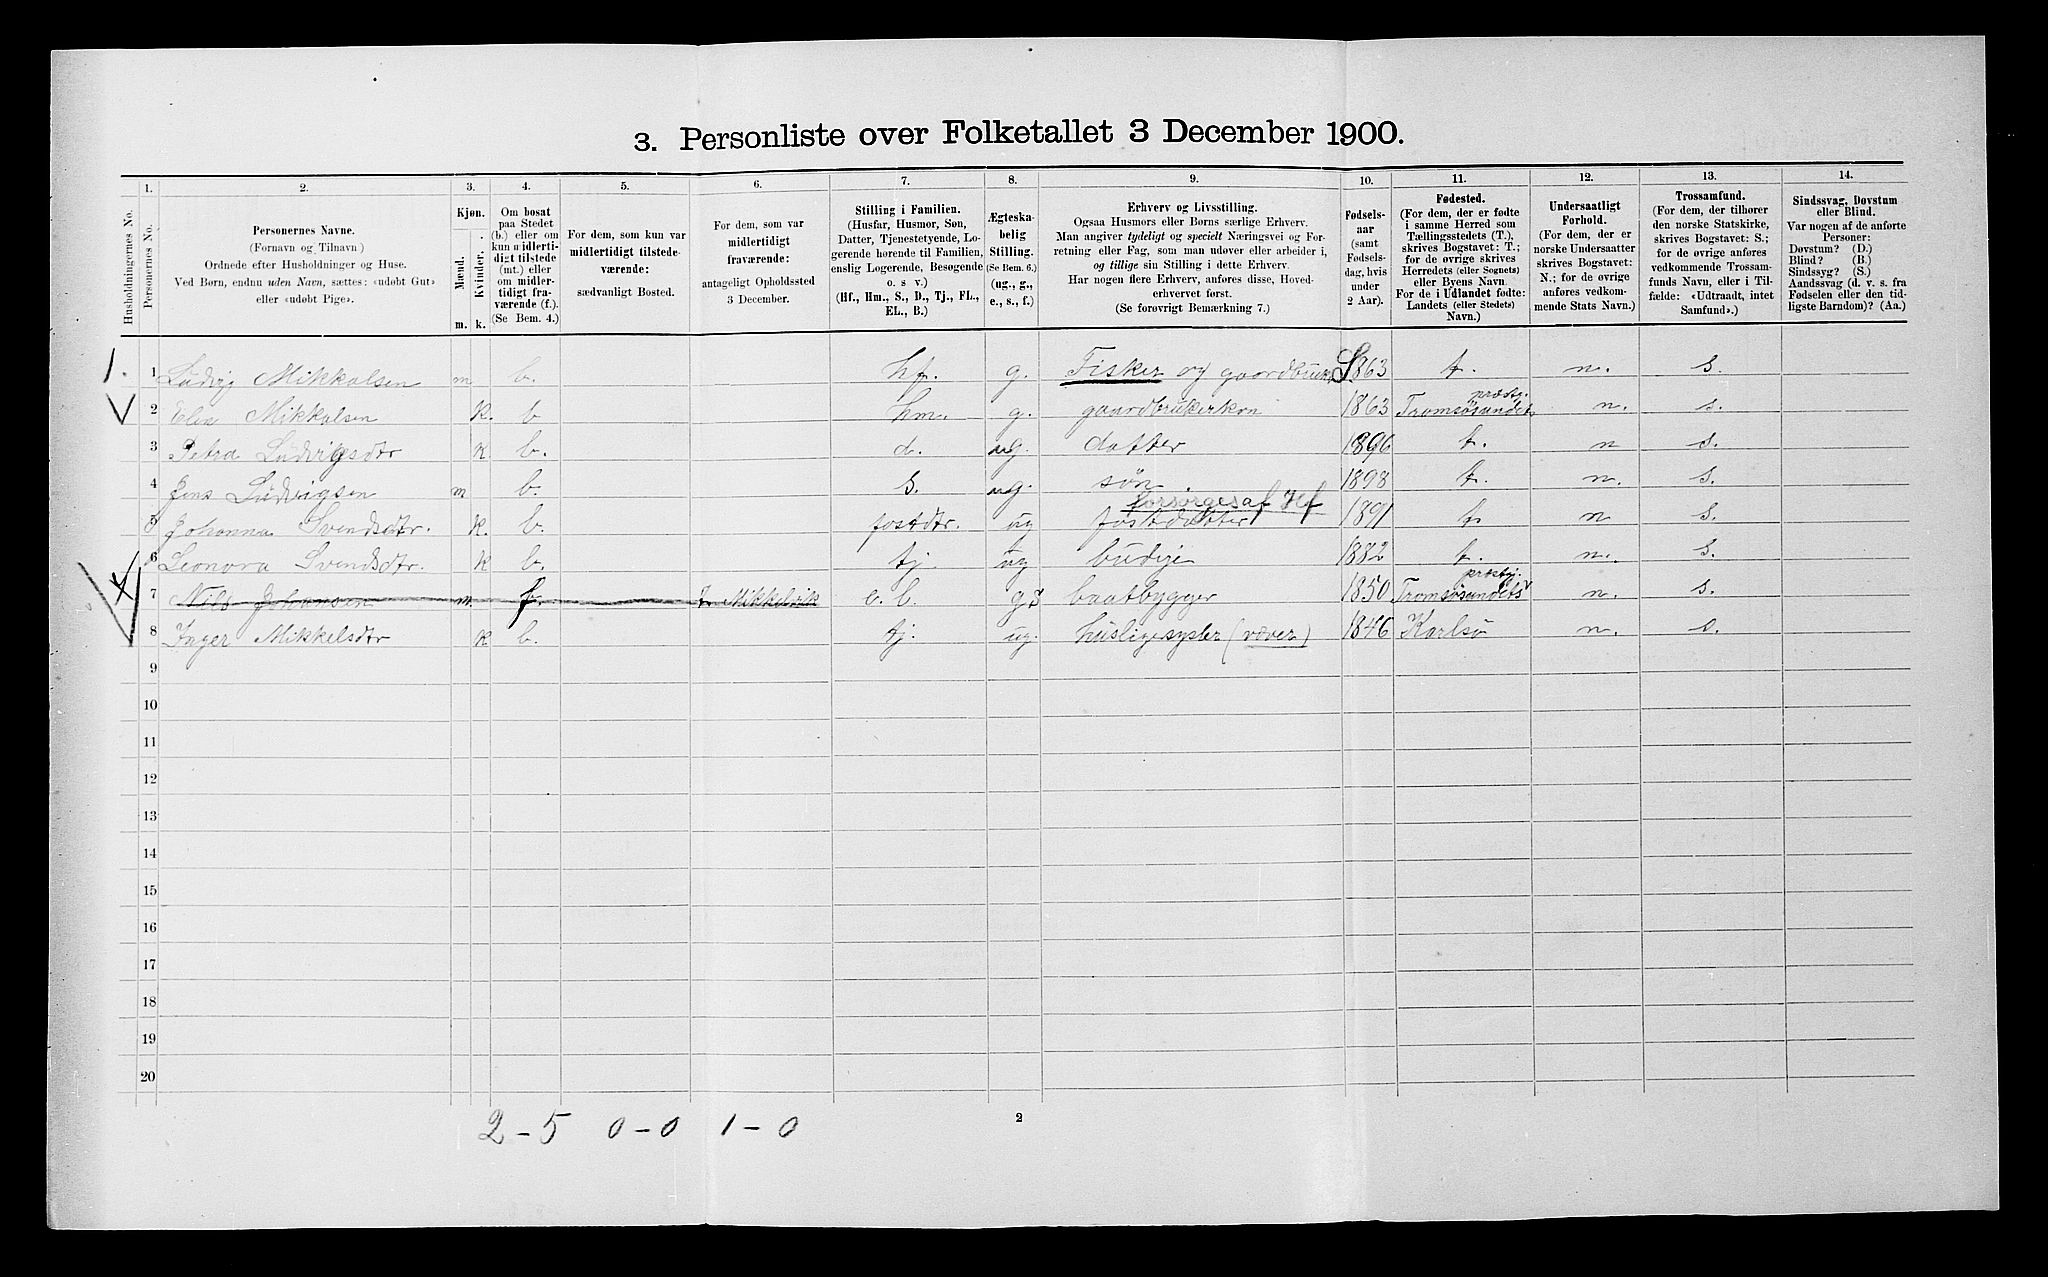 3. Personliste over Folketallet 3 December 1900.
1. 2. 3. 4. 5. 6. 7. 8. 9. 10. 11. 12. 13. 14.
Husholdningernes No.
Personernes No.
Personernes Navne.
(Fornavn og Tilnavn)
Ordnede efter Husholdninger og Huse.
Ved Børn, endnu uden Navn, sættes: «udøbt Gut»
eller «udøbt Pige».
Kjøn.
Mænd.
Kvinder.
m. k.
Om bosat
paa Stedet
(b.) eller om
kun midlerti-
digt tilstede
(mt.) eller
om midler-
tidigt fra-
værende (f.).
(Se Bem. 4.)
For dem, som kun var
midlertidigt tilstede-
værende:
sædvanligt Bosted.
For dem, som var
midlertidigt
fraværende:
antageligt Opholdssted
3 December.
Stilling i Familien.
(Husfar, Husmor, Søn,
Datter, Tjenestetyende, Lo-
gerende hørende til Familien,
enslig Logerende, Besøgende
o. s v.)
(Hf., Hm., S., D., Tj., FL.,
EL., B.)
Ægteska-
belig
Stilling.
(Se Bem. 6.)
(ug., g.,
e., s., f.)
Erhverv og Livsstilling.
Ogsaa Husmors eller Børns særlige Erhverv.
Man angiver tydeligt og specielt Næringsvei og For-
retning eller Fag, som man udøver eller arbeider i,
og tillige sin Stilling i dette Erhverv.
Har nogen flere Erhverv, anføres disse, Hoved-
erhvervet først.
(Se forøvrigt Bemærkning 7.)
Fødsels-
aar
(samt
Fødsels-
dag, hvis
under
2 Aar).
Fødested.
(For dem, der er fødte
i samme Herred som
Tællingsstedets (T.),
skrives Bogstavet: T.;
for de øvrige skrives
Herredets (eller Sognets)
eller Byens Navn.
For de i Udlandet fødte:
Landets (eller Stedets)
Navn.)
Undersaatligt
Forhold.
(For dem, der er
norske Undersaatter
skrives Bogstavet:
N.; for de øvrige
anføres vedkom-
mende Stats Navn.)
Trossamfund.
(For dem, der tilhører
den norske Statskirke,
skrives Bogstavet: S.;
for de øvrige anføres
vedkommende Trossam-
funds Navn, eller i Til-
fælde: «Udtraadt, intet
Samfund».)
Sindssvag, Døvstum
eller Blind.
Var nogen af de anførte
Personer:
Døvstum? (D.)
Blind? (B.)
Sindssyg? (S.)
Aandssvag (d. v. s. fra
Fødselen eller den tid-
ligste Barndom)? (Aa.)
1. 1 Ludvig Mikkalsen m b. hf. g. Fisker og gaardbruk. S. 1863 t. n. s.
2 Elen Mikkalsen k. b hm. g. gaardbrukerkon 1863 Tromsøsundets præstg. n. s.
3 Petra Ludvigsdtr k b. d. ug. datter 1896 t. n s.
4 Jens Ludvigsen m b. s. ug. søn 1898 t. n. s.
forsørges af Hf
5 Johanna Svendsdtr. k. b. fostdtr. ug fostdatter 1891 t. n s.
6 Leonora Svendsdtr. k b. tj. ug budeje 1882 t. n. s.
7 Nils Johansen m. f. Mikkelvik e. l. g baatbygger 1850 Tromsøsundets præstgj. n. s.
8 Inger Mikkelsdtr k b. tj. ug. husligesysler (væver) 1846 Karlsø n. s.
9
10
11
12
13
14
15
16
17
18
19
20
2-5 0-0 1-0
2